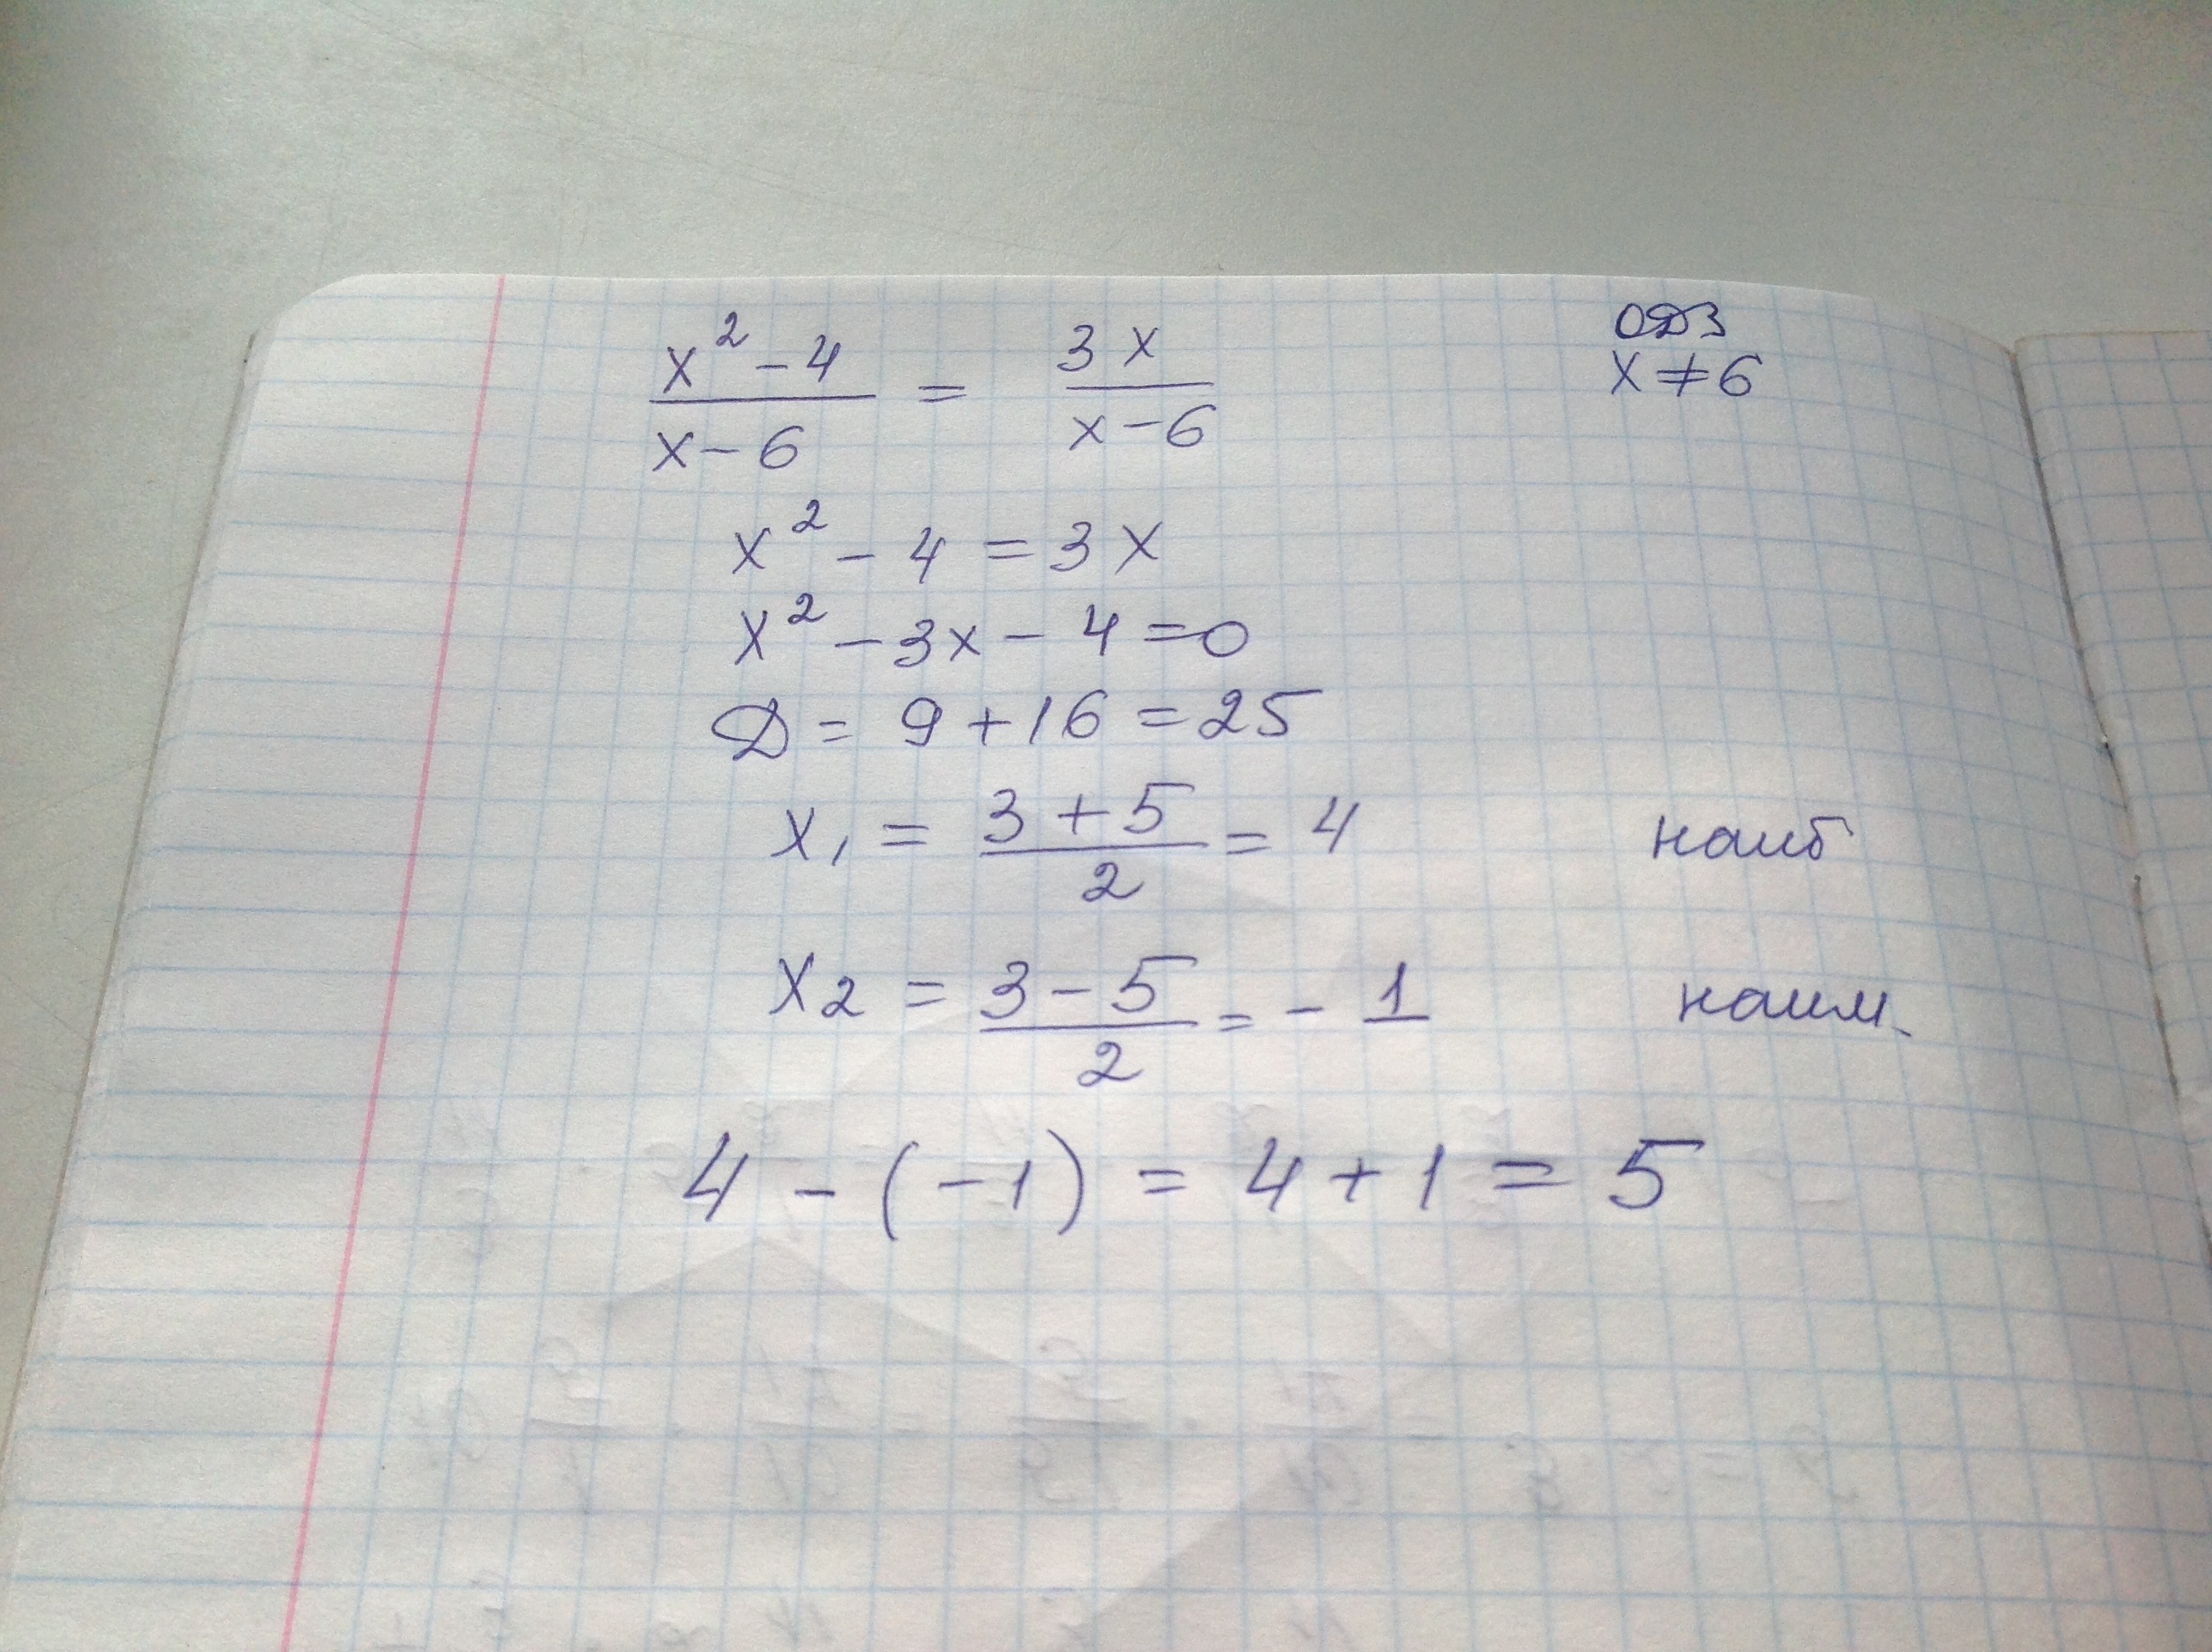 (x² - 4)/(x - 6) = 3x/(x - 6)
ОДЗ
x ≠ 6
x² - 4 = 3x
x² - 3x - 4 = 0
Д = 9 + 16 = 25
x₁ = (3 + 5)/2 = 4 наиб
x₂ = (3 - 5)/2 = - 1 наим.
4 - (-1) = 4 + 1 = 5